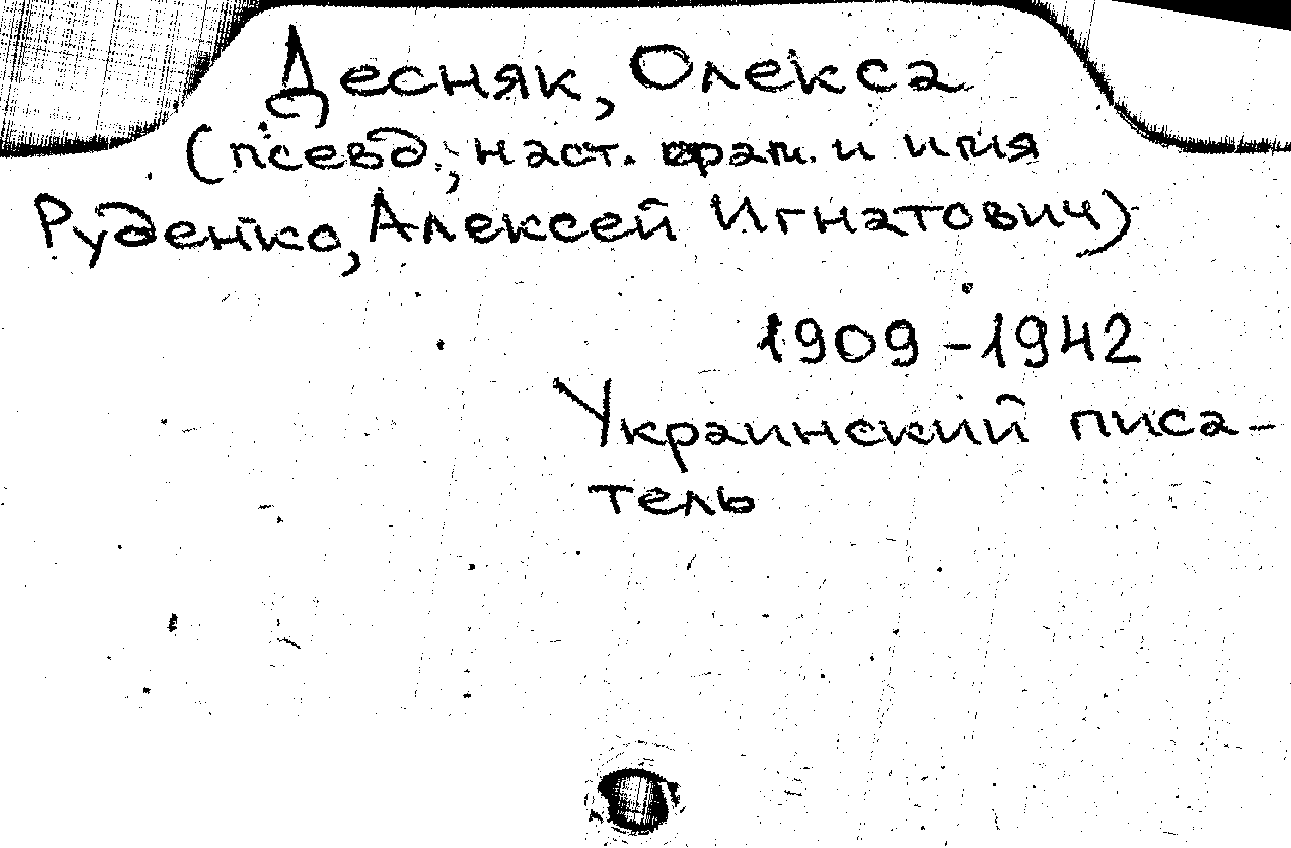 Десняк, Олекса
(псевд.; наст. фам. и имя
Руденко, Алексей Игнатович)
1909-1942
Украинский писа-
тель